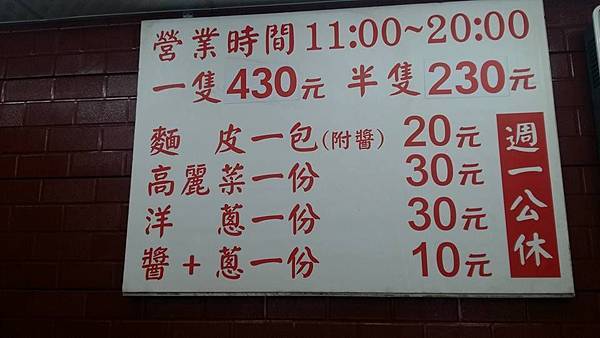 營業時間11:00~20:00
一隻430元 半隻230元
麵皮一包(附醬) 20元
高麗菜一份 30元
洋蔥一份 30元
醬+蔥一份 10元
週一公休